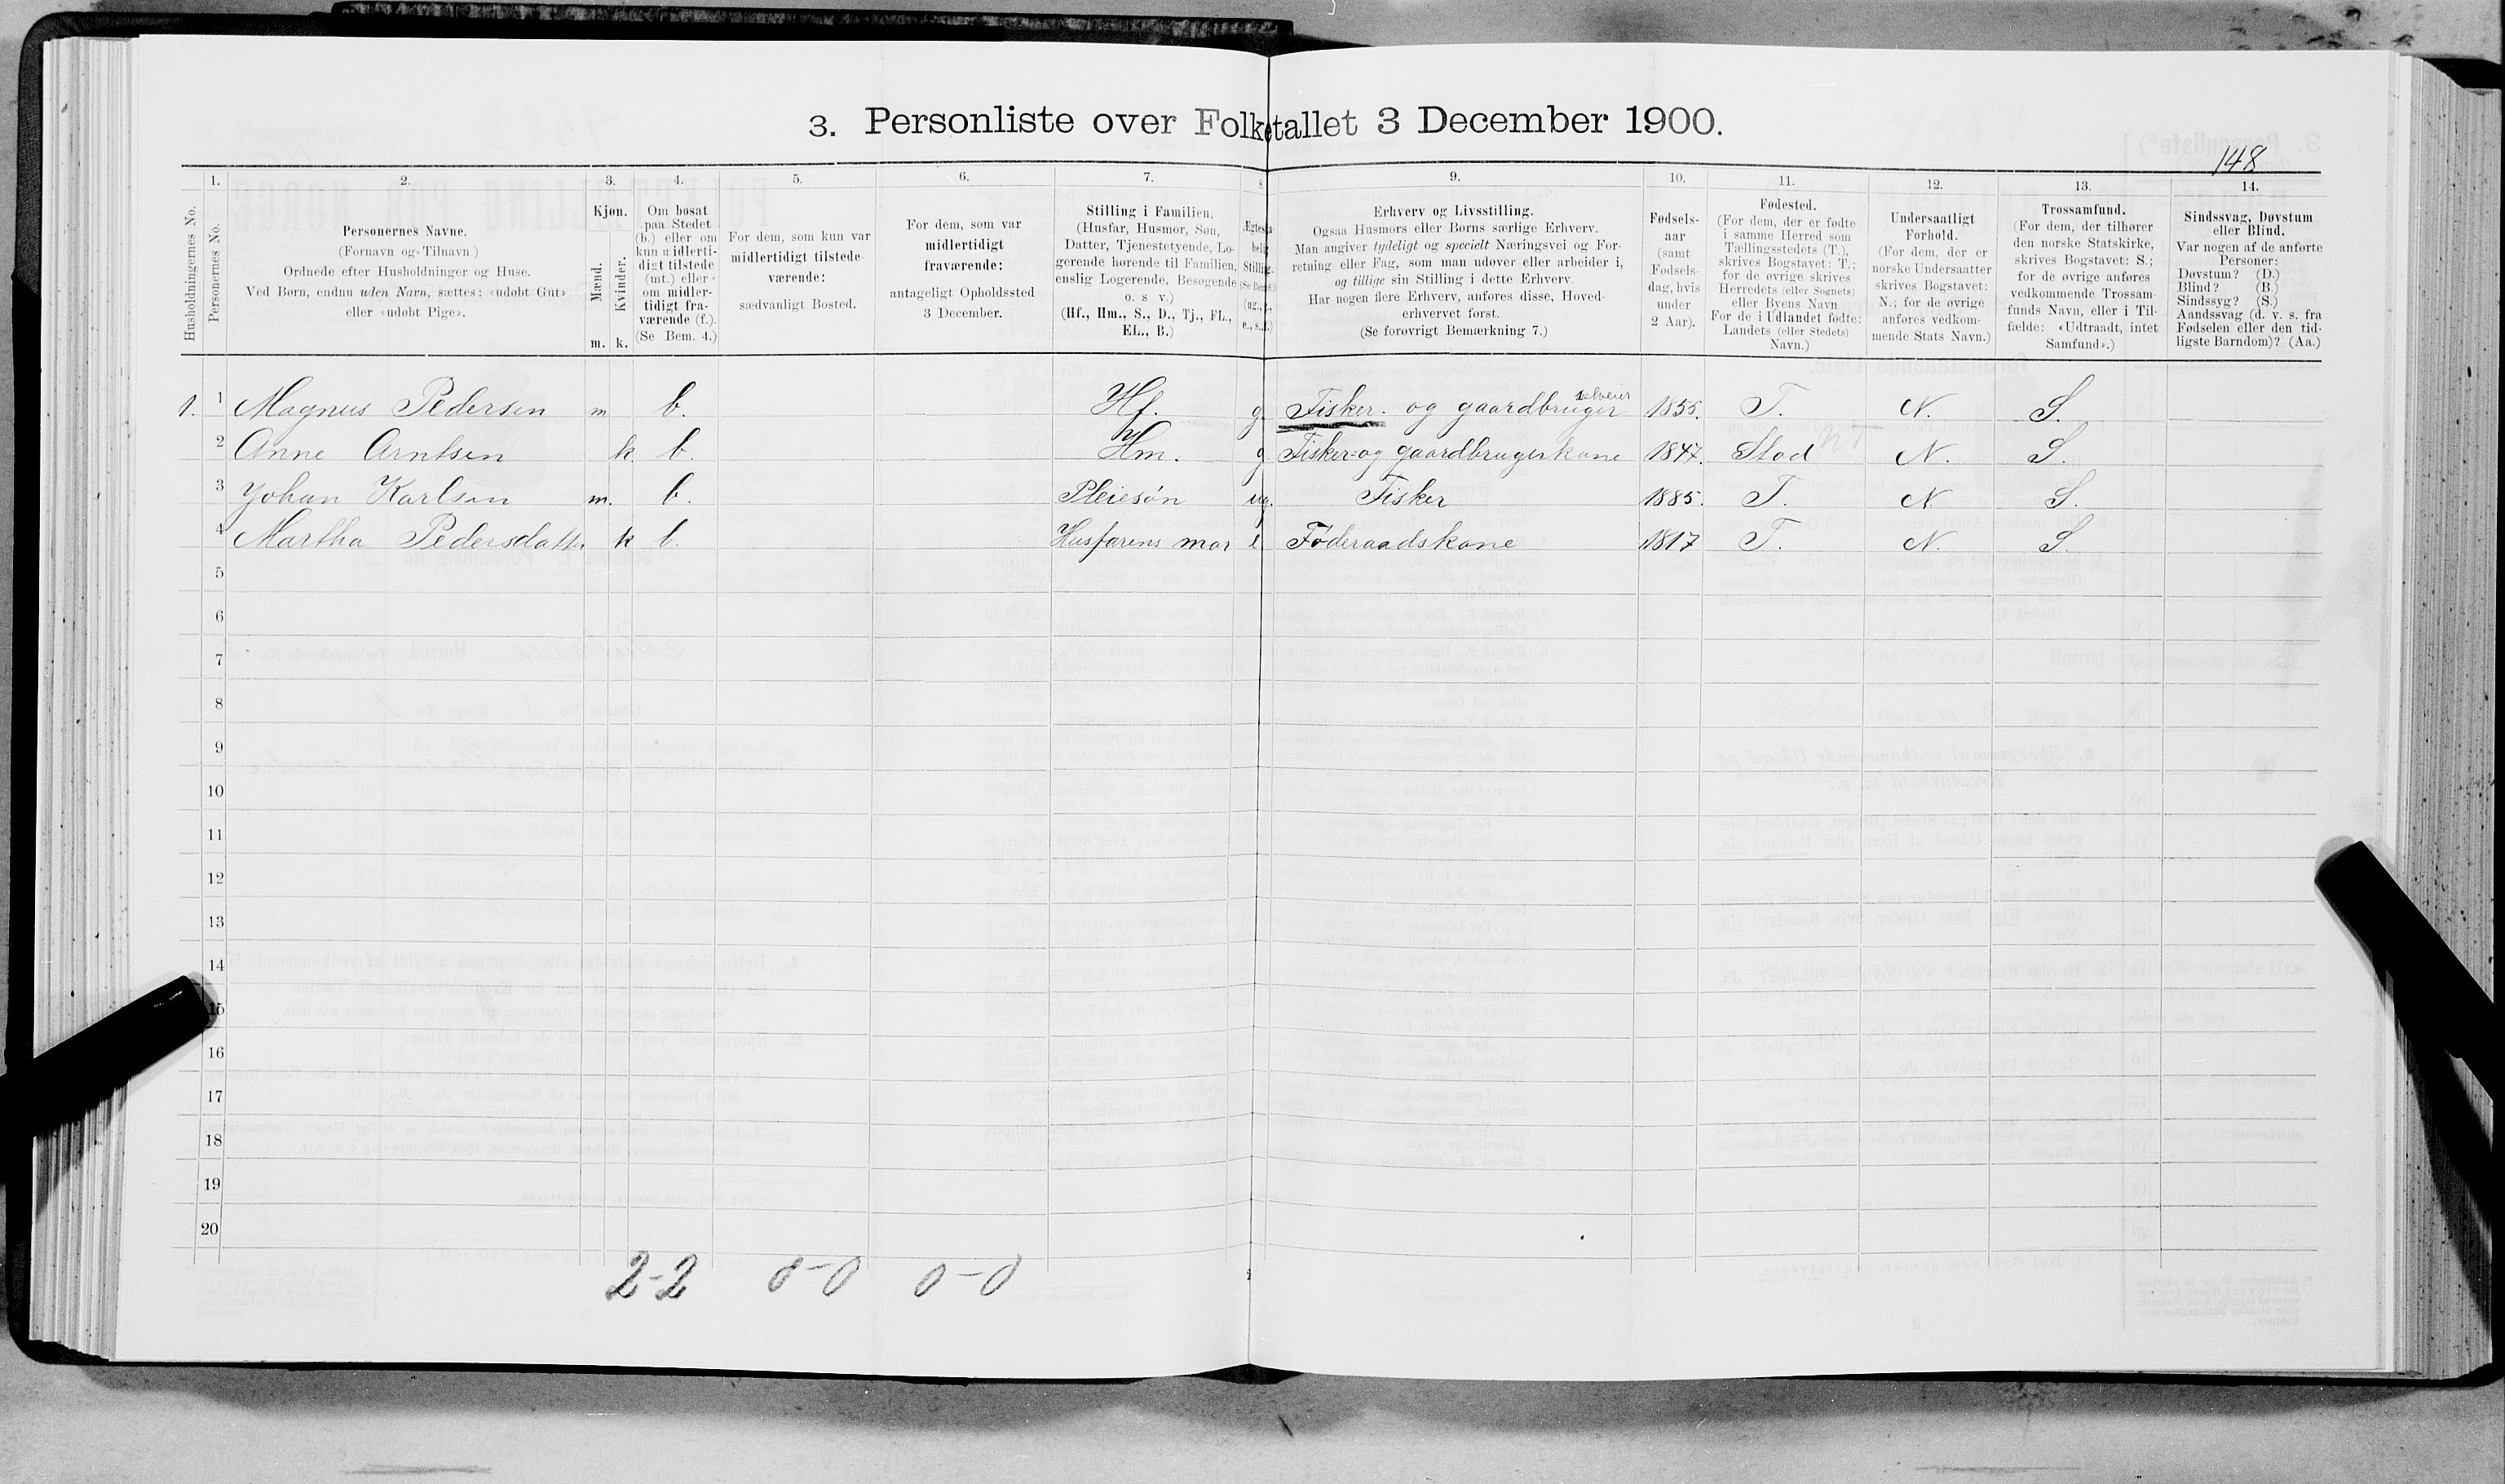 3. Personliste over Folketallet 3 December 1900.
148
1. 2. 3. 4. 5. 6. 7. 8 9. 10. 11. 12. 13. 14.
Husholdningernes No.
Personernes No.
Personernes Navne.
(Fornavn og Tilnavn.)
Ordnede efter Husholdninger og Huse.
Ved Børn, endnu uden Navn, sættes: «udøbt Gut»
eller «udøbt Pige».
Kjøn.
Mænd.
Kvinder.
m. k.
Om bosat
paa Stedet
(b.) eller om
kun midlerti-
digt tilstede
(mt.) eller
om midler-
tidigt fra-
værende (f.).
(Se Bem. 4.)
For dem, som kun var
midlertidigt tilstede-
værende:
sædvanligt Bosted.
For dem, som var
midlertidigt
fraværende:
antageligt Opholdssted
3 December.
Stilling i Familien.
(Husfar, Husmor, Søn,
Datter, Tjenestetyende, Lo-
gerende hørende til Familien,
enslig Logerende, Besøgende
o. s v.)
(Hf., Hm., S., D., Tj., FL.,
EL., B.)
Ægteska-
belig
Stilling.
(Se Bem. 6.)
(ug., g.,
e., s., f.)
Erhverv og Livsstilling.
Ogsaa Husmors eller Børns særlige Erhverv.
Man angiver tydeligt og specielt Næringsvei og For-
retning eller Fag, som man udøver eller arbeider i,
og tillige sin Stilling i dette Erhverv.
Har nogen flere Erhverv, anføres disse, Hoved-
erhvervet først.
(Se forøvrigt Bemærkning 7.)
Fødsels-
aar
(samt
Fødsels-
dag, hvis
under
2 Aar).
Fødested.
(For dem, der er fødte
i samme Herred som
Tællingsstedets (T.),
skrives Bogstavet: T.;
for de øvrige skrives
Herredets (eller Sognets)
eller Byens Navn
For de i Udlandet fødte:
Landets (eller Stedets)
Navn.)
Undersaatligt
Forhold.
(For dem, der er
norske Undersaatter
skrives Bogstavet:
N.; for de øvrige
anføres vedkom-
mende Stats Navn.)
Trossamfund.
(For dem, der tilhører
den norske Statskirke,
skrives Bogstavet: S.;
for de øvrige anføres
vedkommende Trossam-
funds Navn, eller i Til-
fælde: «Udtraadt, intet
Samfund».)
Sindssvag, Døvstum
eller Blind.
Var nogen af de anførte
Personer:
Døvstum? (D.)
Blind? (B.)
Sindssyg? (S.)
Aandssvag (d. v. s. fra
Fødselen eller den tid-
ligste Barndom)? (Aa.)
1. 1 Magnus Pedersen m b. Hf. g. Fisker. og gaardbruger selveier 1855. T. N. S.
2 Anne Arntsen k. b. Hm. g Fisker= og gaardbrugerkone 1847. Stod NT N. S.
3 Johan Karlsen m. b. Pleiesøn ug. Fisker 1885. T. N. S.
4 Martha Pedersdatter k b. Husfarens mor e Føderaadskone 1817 T. N. S.
5
6
7
8
9
10
11
12
13
14
15
16
17
18
19
20
2-2 0-0 0-0